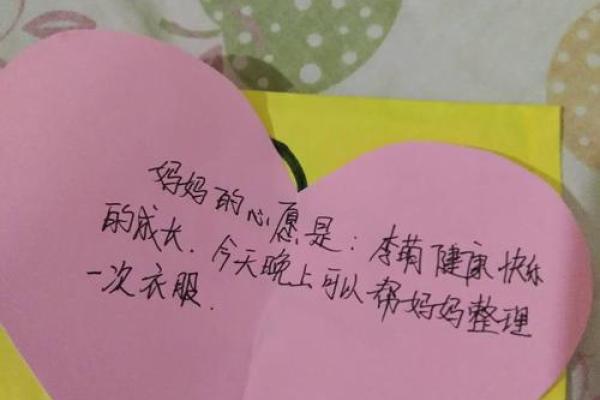 妈妈的心愿是：李萌健康快乐
的成长.今天晚上可以帮妈妈整理
一次衣服.